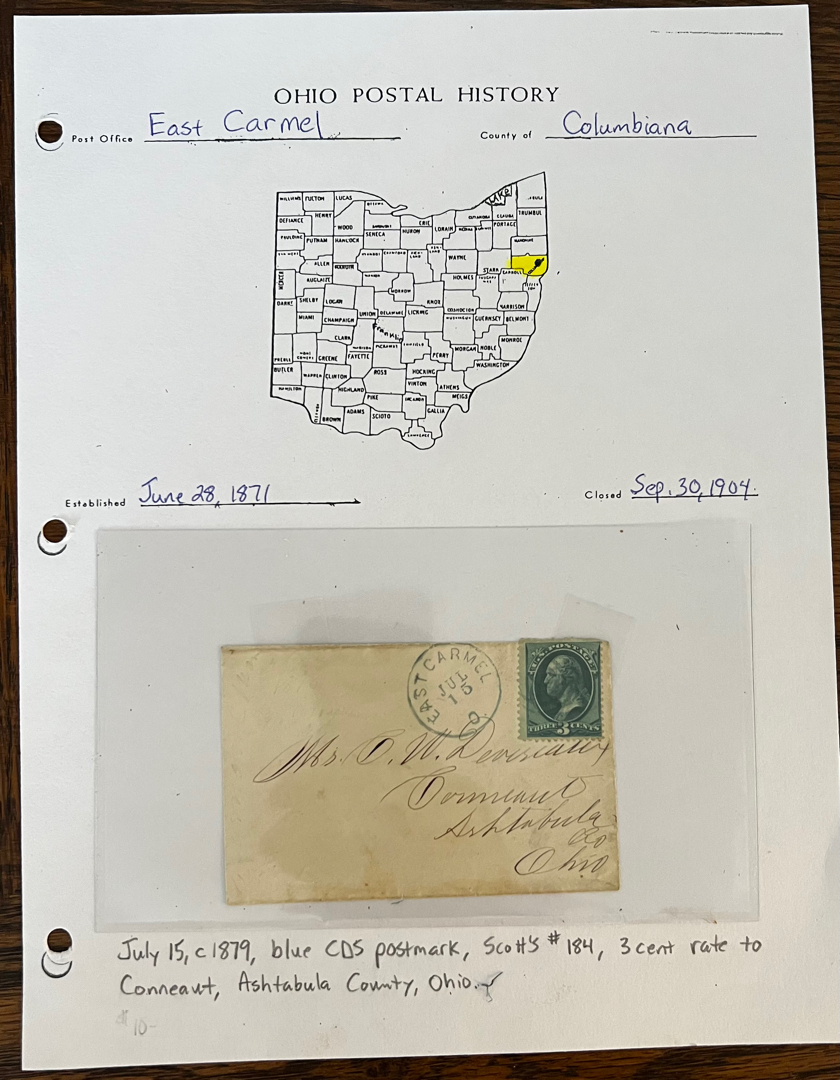 OHIO POSTAL HISTORY
Post Office East Carmel County of Columbiana
Lake
WILLIAMS FULTON LUCAS
OTTAWA
DEFIANCE HENRY WOOD SANDUSKY ERIE LORAIN CUYAHOGA GEAUGA TRUMBUL
PAULDING PUTNAM HANCOCK SENECA HURON MEDINA SUMMIT PORTAGE
MAHONING
ALLEN WYANDOT CRAWFORD WAYNE STARK CARROLL
MERCER AUGLAIZE HARDIN HOLMES
MORROW
DARKE SHELBY LOGAN KNOX COSHOCTON HARRISON
MIAMI CHAMPAIGN UNION DELAWARE LICKING MUSKINGUM GUERNSEY BELMONT
CLARK Franklin
PREBLE GREENE FAYETTE PICKAWAY PERRY MORGAN NOBLE MONROE
BUTLER WARREN CLINTON ROSS HOCKING WASHINGTON
HAMILTON HIGHLAND PIKE VINTON ATHENS
BROWN ADAMS SCIOTO GALLIA MEIGS
LAWRENCE
Established June 28, 1871 Closed Sep. 30, 1904.
EAST CARMEL
JUL
15
O
U.S. POSTAGE
THREE 3 CENTS
Mr. C. W. Devereaux
Conneaut
Ashtabula
Co
Ohio
July 15, c 1879, blue CDS postmark, Scott's #184, 3 cent rate to
Conneaut, Ashtabula County, Ohio.
$10-